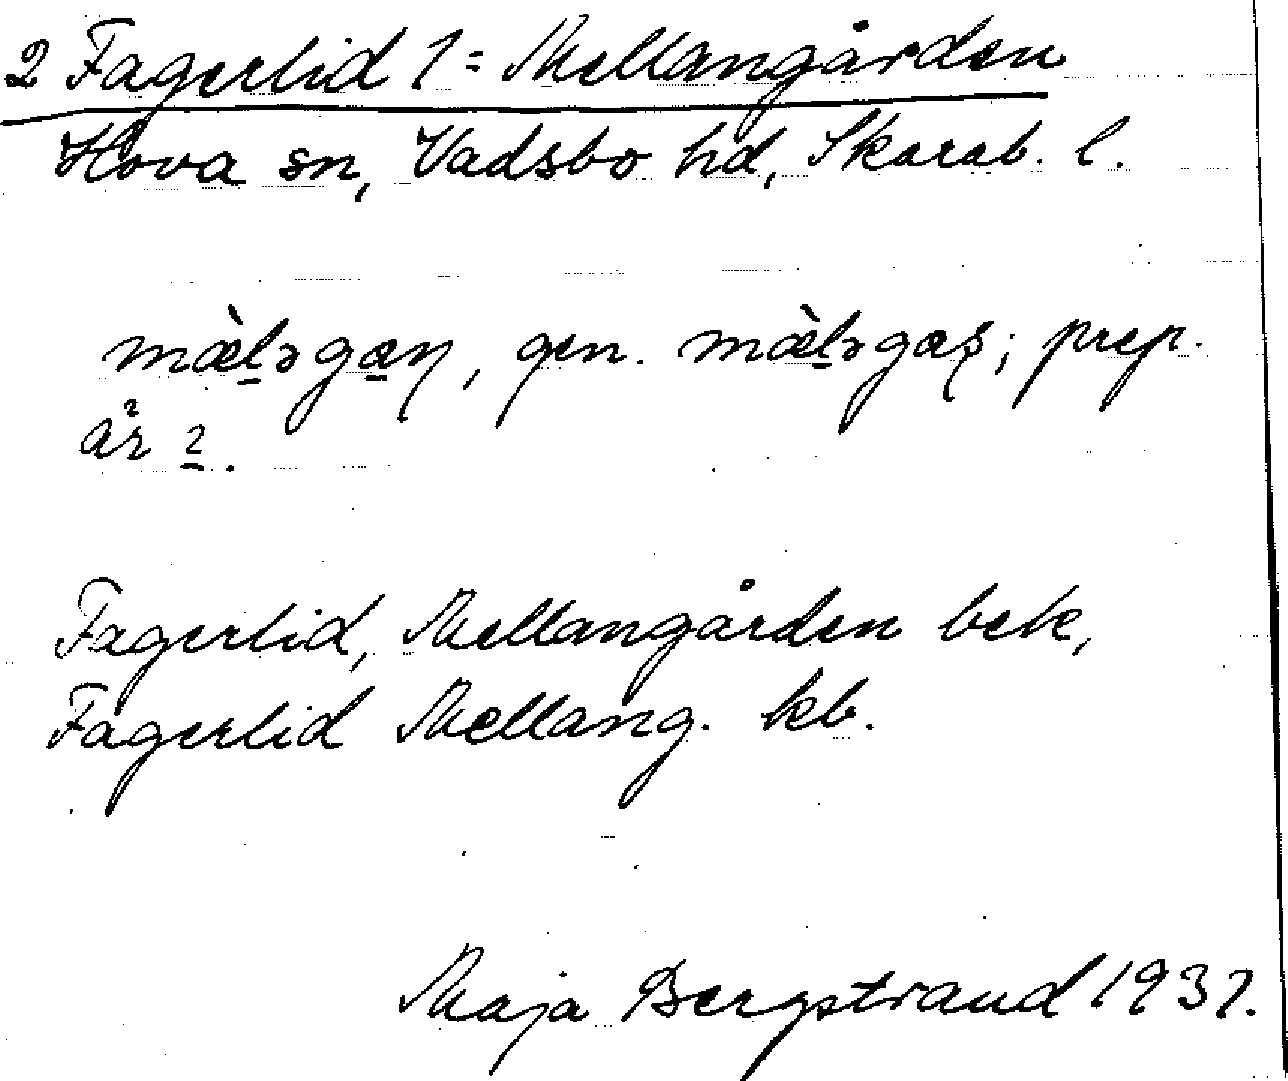 2 Fagerlid 1 = Mellangården
Hova sn, Vadsbo hd, Skarab. l.
mæ̀l̠əgæ̠ɳ, gen. mæ̀l̠əgæʂ; prep.
Fagerlid, Mellangården bek,
Fagerlid Mellang. kb.
Maja Bergstrand 1937.